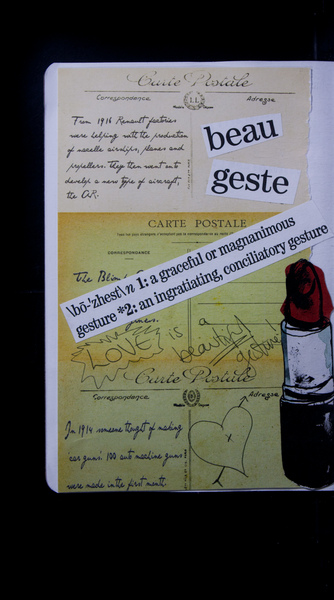 Carte Postale
Correspondance
Adresse
From 1916 Renault factories
were helping with the production
of nacelle airships, planes and
propellers. They then went onto
develop a new type of aircraft,
the O.R.
beau
geste
CARTE POSTALE
CORRESPONDANCE
the Blind
\bō-'zhest\n 1: a graceful or magnanimous
gesture *2: an ingratiating, conciliatory gesture
LOVE is a
beautiful
gesture!
Carte Postale
Correspondance
Adresse
In 1914 someone thought of making
'car guns'. 100 auto machine guns
were made in the first month
x